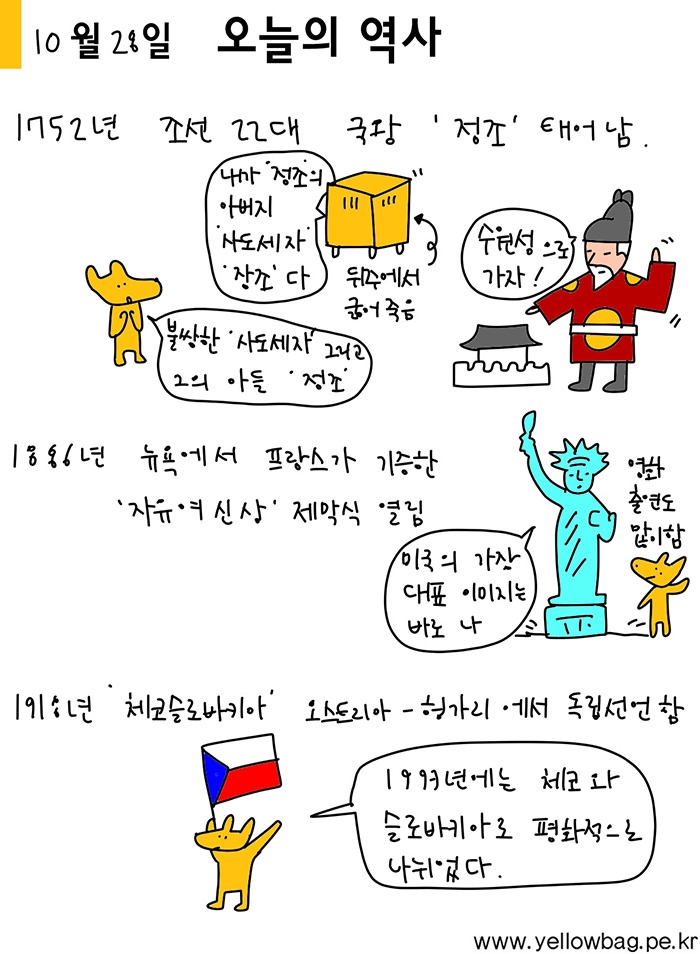 10월 28일 오늘의 역사
1752년 조선 22대 국왕 '정조' 태어남.
내가 '정조'의
아버지
'사도세자'
'장조'다
뒤주에서
굶어 죽음
수원성으로
가자!
불쌍한 '사도세자' 그리고
그의 아들 '정조'
1886년 뉴욕에서 프랑스가 기증한
'자유여신상' 제막식 열림
영화
출연도
많이함
미국의 가장
대표 이미지는
바로 나
1918년 '체코슬로바키아' 오스트리아-헝가리에서 독립선언함
1993년에는 체코와
슬로바키아로 평화적으로
나뉘었다.
www.yellowbag.pe.kr